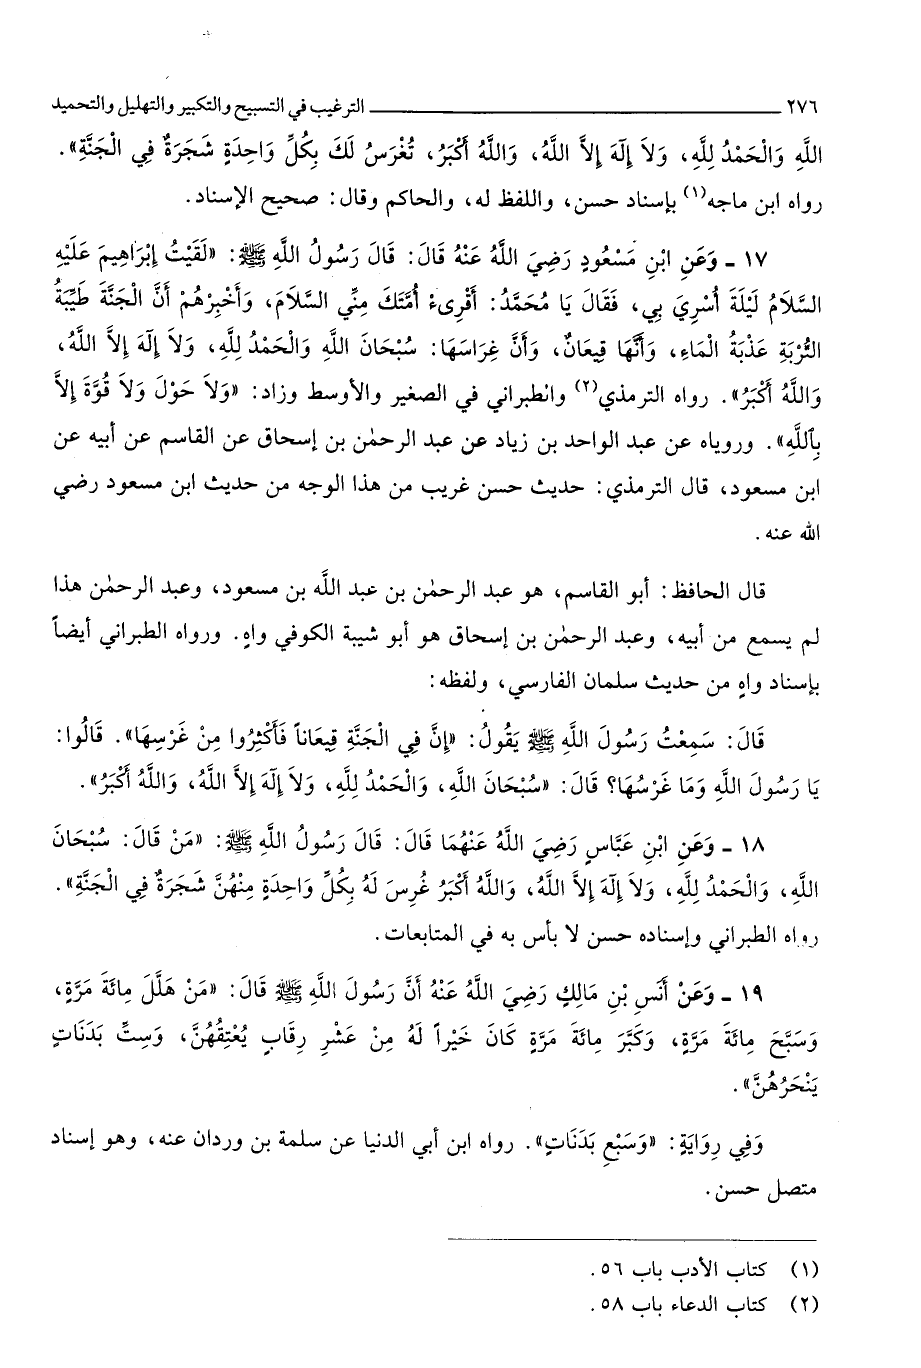 ٢٧٦ ــــــــــــــــــــ الترغيب في التسبيح والتكبير والتهليل والتحميد
اللَّهِ وَالْحَمْدُ لِلَّهِ، وَلاَ إِلَهَ إِلاَّ اللَّهُ، وَاللَّهُ أَكْبَرُ، تُغْرَسُ لَكَ بِكُلِّ وَاحِدَةٍ شَجَرَةٌ فِي الْجَنَّةِ».
رواه ابن ماجه(١) بإسناد حسن، واللفظ له، والحاكم وقال: صحيح الإسناد.
١٧ ـ وَعَنِ ابْنِ مَسْعُودٍ رَضِيَ اللَّهُ عَنْهُ قَالَ: قَالَ رَسُولُ اللَّهِ ﷺ: «لَقَيْتُ إِبْرَاهِيمَ عَلَيْهِ
السَّلاَمُ لَيْلَةَ أُسْرِيَ بِي، فَقَالَ يَا مُحَمَّدُ: أَقْرِىءْ أُمَّتَكَ مِنِّي السَّلاَمَ، وَأَخْبِرْهُمْ أَنَّ الْجَنَّةَ طَيِّبَةُ
التُّرْبَةِ عَذْبَةُ الْمَاءِ، وَأَنَّهَا قِيعَانٌ، وَأَنَّ غِرَاسَهَا: سُبْحَانَ اللَّهِ وَالْحَمْدُ لِلَّهِ، وَلاَ إِلَهَ إِلاَّ اللَّهُ،
وَاللَّهُ أَكْبَرُ». رواه الترمذي(٢) والطبراني في الصغير والأوسط وزاد: «وَلاَ حَوْلَ وَلاَ قُوَّةَ إِلاَّ
بِاللَّهِ». وروياه عن عبد الواحد بن زياد عن عبد الرحمٰن بن إسحاق عن القاسم عن أبيه عن
ابن مسعود، قال الترمذي: حديث حسن غريب من هذا الوجه من حديث ابن مسعود رضي
الله عنه.
قال الحافظ: أبو القاسم، هو عبد الرحمٰن بن عبد اللَّه بن مسعود، وعبد الرحمٰن هذا
لم يسمع من أبيه، وعبد الرحمٰن بن إسحاق هو أبو شيبة الكوفي واهٍ. ورواه الطبراني أيضاً
بإسناد واهٍ من حديث سلمان الفارسي، ولفظه:
قَالَ: سَمِعْتُ رَسُولَ اللَّهِ ﷺ يَقُولُ: «إِنَّ فِي الْجَنَّةِ قِيعَاناً فَأَكْثِرُوا مِنْ غَرْسِهَا». قَالُوا:
يَا رَسُولَ اللَّهِ وَمَا غَرْسُهَا؟ قَالَ: «سُبْحَانَ اللَّهِ، وَالْحَمْدُ لِلَّهِ، وَلاَ إِلَهَ إِلاَّ اللَّهُ، وَاللَّهُ أَكْبَرُ».
١٨ ـ وَعَنِ ابْنِ عَبَّاسٍ رَضِيَ اللَّهُ عَنْهُمَا قَالَ: قَالَ رَسُولُ اللَّهِ ﷺ: «مَنْ قَالَ: سُبْحَانَ
اللَّهِ، وَالْحَمْدُ لِلَّهِ، وَلاَ إِلَهَ إِلاَّ اللَّهُ، وَاللَّهُ أَكْبَرُ غُرِسَ لَهُ بِكُلِّ وَاحِدَةٍ مِنْهُنَّ شَجَرَةٌ فِي الْجَنَّةِ».
رواه الطبراني وإسناده حسن لا بأس به في المتابعات.
١٩ ـ وَعَنْ أَنَسِ بْنِ مَالِكٍ رَضِيَ اللَّهُ عَنْهُ أَنَّ رَسُولَ اللَّهِ ﷺ قَالَ: «مَنْ هَلَّلَ مِائَةَ مَرَّةٍ،
وَسَبَّحَ مِائَةَ مَرَّةٍ، وَكَبَّرَ مِائَةَ مَرَّةٍ كَانَ خَيْراً لَهُ مِنْ عَشْرِ رِقَابٍ يُعْتِقُهُنَّ، وَسِتِّ بَدَنَاتٍ
يَنْحَرُهُنَّ».
وَفِي رِوَايَةٍ: «وَسَبْعِ بَدَنَاتٍ». رواه ابن أبي الدنيا عن سلمة بن وردان عنه، وهو إسناد
متصل حسن.
(١) كتاب الأدب باب ٥٦.
(٢) كتاب الدعاء باب ٥٨.